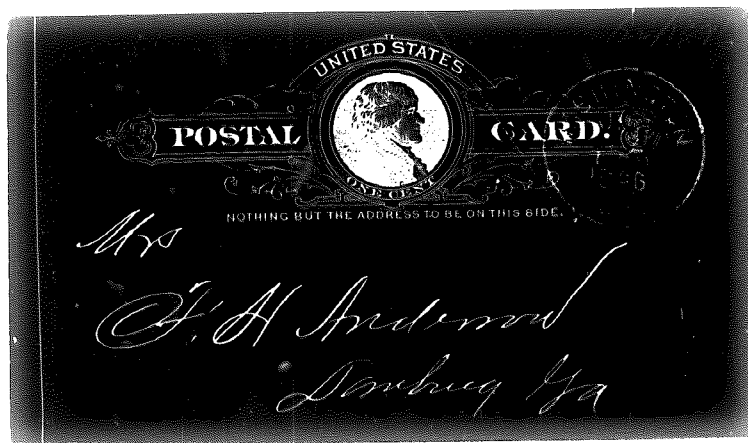 UNITED STATES
POSTAL CARD.
ONE CENT
NOTHING BUT THE ADDRESS TO BE ON THIS SIDE.
Mrs
F. H Anderson
Danburg Ga